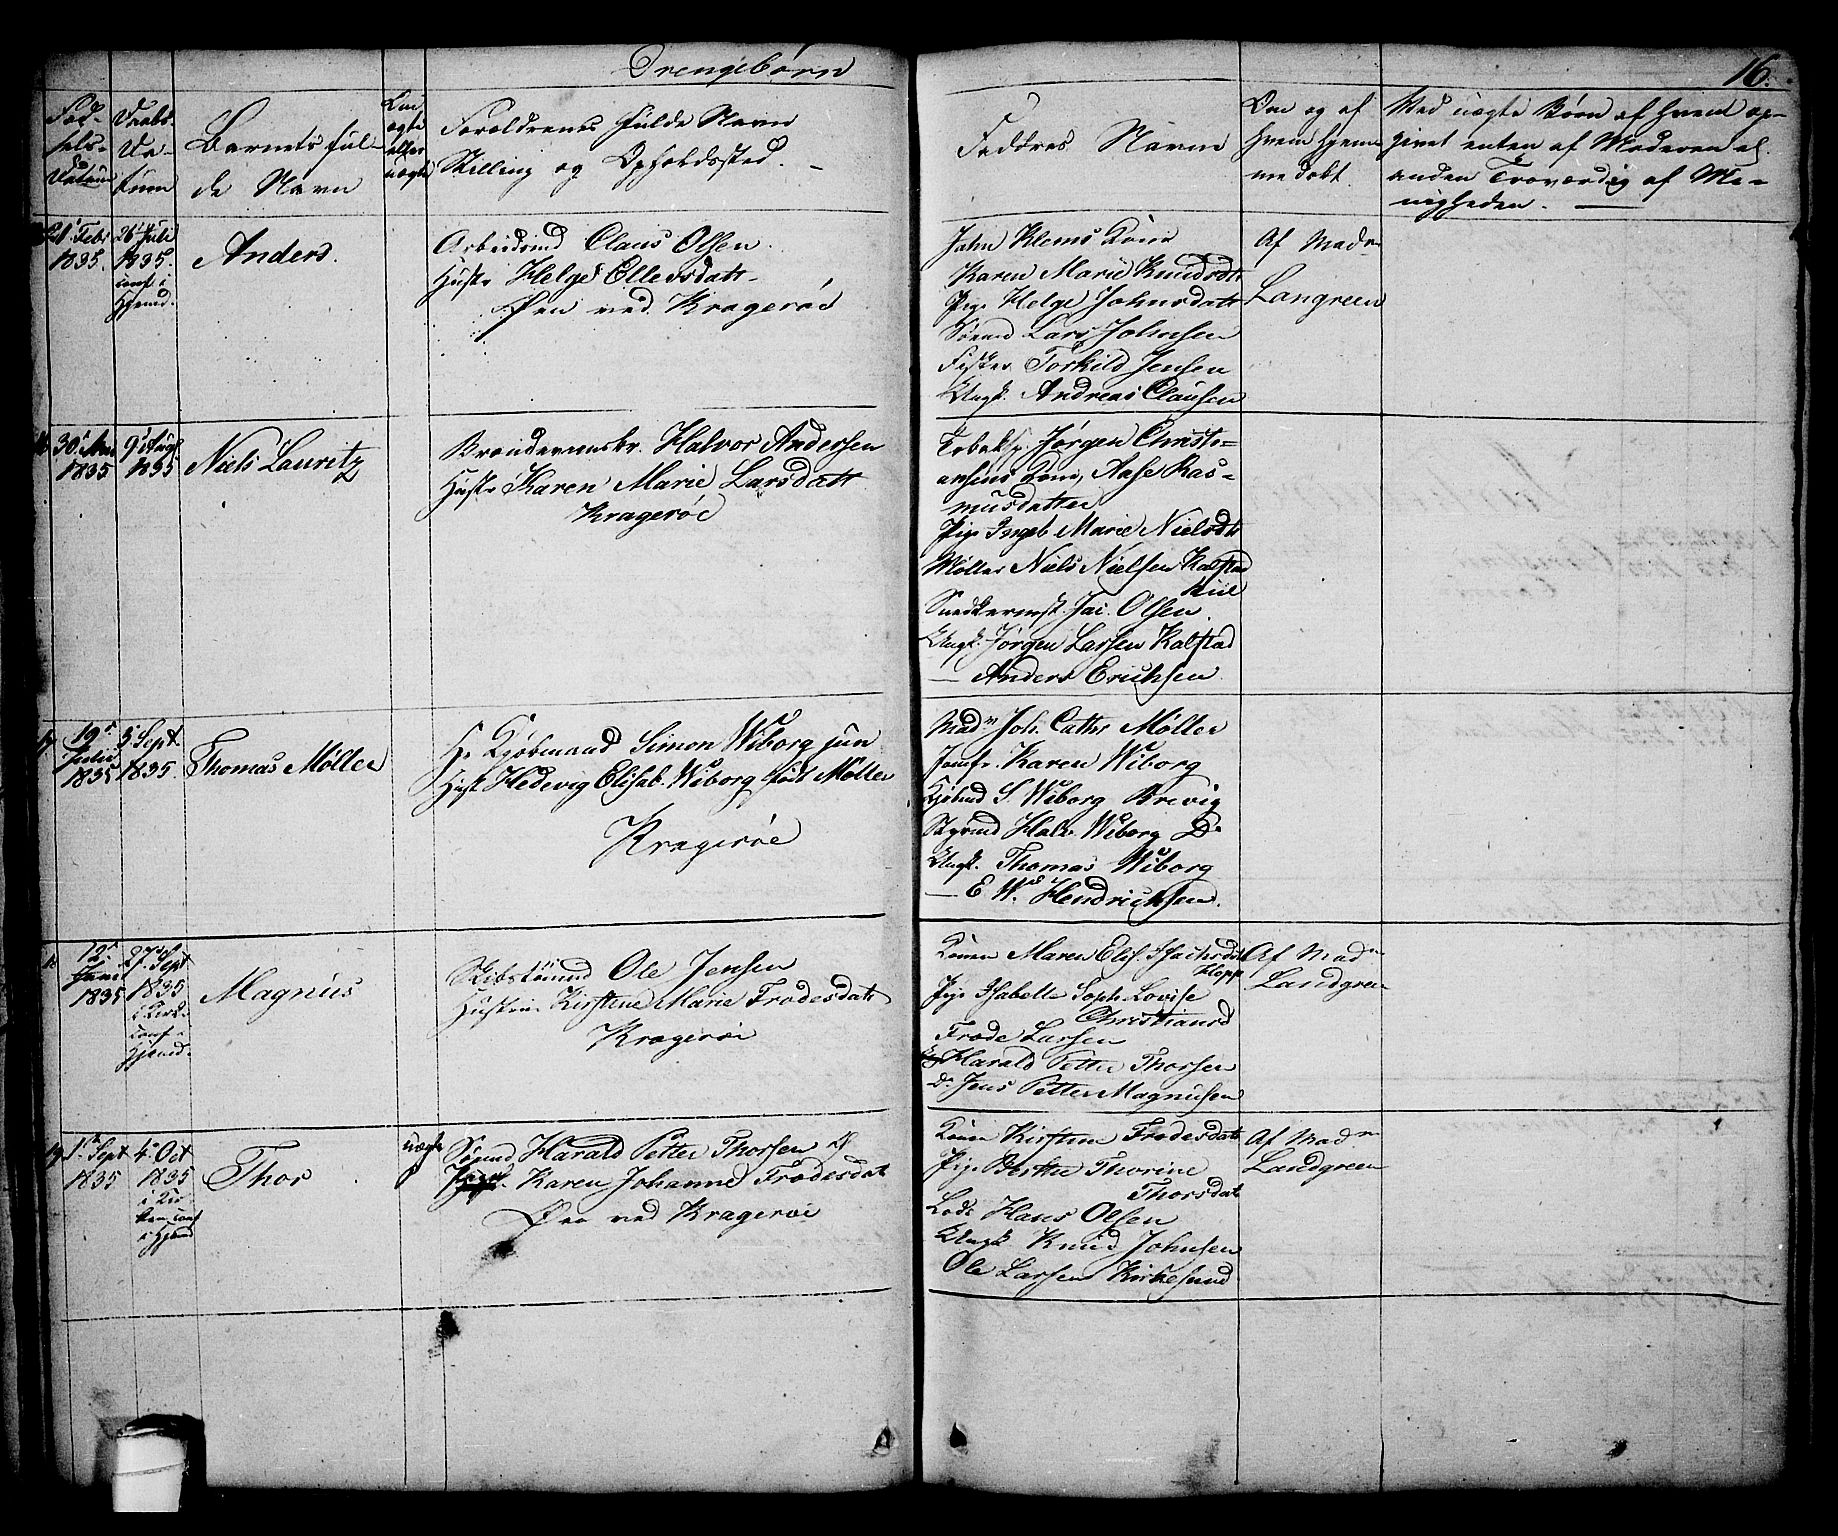 Drengebørn
16.
Fød-
sels-
Datum
Daabs-
Da-
tum
Barnets ful-
de Navn
Om
ægte
eller
uægte
Forældrenes fulde Navn
Stilling og Opholdssted. —
Faddres Navne
Om og af
hvem hjem-
me døbt.
Ved uægte Børn af hvem op-
givet enten af Moderen el.
anden Troværdig af Me-
nigheden. —
21 Febr
1835.
26 Juli
1835.
conf i
Hjemd.
Anders.
Arbeidsmd Claus Olsen.
Hustr Helge Ellersdatt.
Øen ved Kragerøe
John Klems Kone
Karen Marie Knudsdt
Pige Helge Johnsdatt
Sømd Lars Johnsen
Fisker Torkild Jensen
Ungk. Andreas Clausen
Af Madm
Langreen
16
30
1835
9 Aug
1835
Niels Lauritz
Halvor Andersen
Hustr Karen Marie Larsdatt
Kragerøe
Tobaksp. Jørgen Christi-
ansens Kone, Aase Ras-
musdatter
Pige Ingeb Marie Nielsdt
Møller Niels Nielsen Kalstad
Kiil
Snedkermst. Jac. Olsen.
Ungk. Jørgen Larsen Kalstad
— Anders Erichsen.
17
19
Julii
1835
3 Sept.
1835.
Thomas Møller
Hr Kjøbmand Simon Wiborg jun
Hust Hedevig Elisab. Wiborg født Møller
Kragerøe
Mad Joh. Cathr Møller
Jomfr. Karen Wiborg
Kjøbmd S. Wiborg Brevig
Halv. Wiborg Do
Ungk. Thomas Wiborg
— E W. Hendrichsen.
18
12
Junii
1835
27 Sept
1835
i Kirk.
conf i
Hjemd.
Magnus
Skibstømmd Ole Jensen
Hustrue Kirstine Marie Frodesdatt
Kragerøe
Konen Maren Elis. Isachsdat
Klopp
Pige Isabelle Soph. Lovise
Christiansd
Frode Larsen
Harald Petter Thorsen
Do Jens Petter Magnusen
Af Madm
Landgren
19
1 Sept
1835
4 Oct
1835
i Kir
ken conf
i Hjemd
Thor
uægte
Sømd Harald Petter Thorsen &
Karen Johanne Frodesdat
Øen ved Kragerøe
Konen Kirstine Frodesdatt
Pige Berthe Thorine
Thorsdat
Lods Hans Olsen
Ungk Knud Johnsen
Ole Larsen Kirkesund
Af Madm
Landgreen